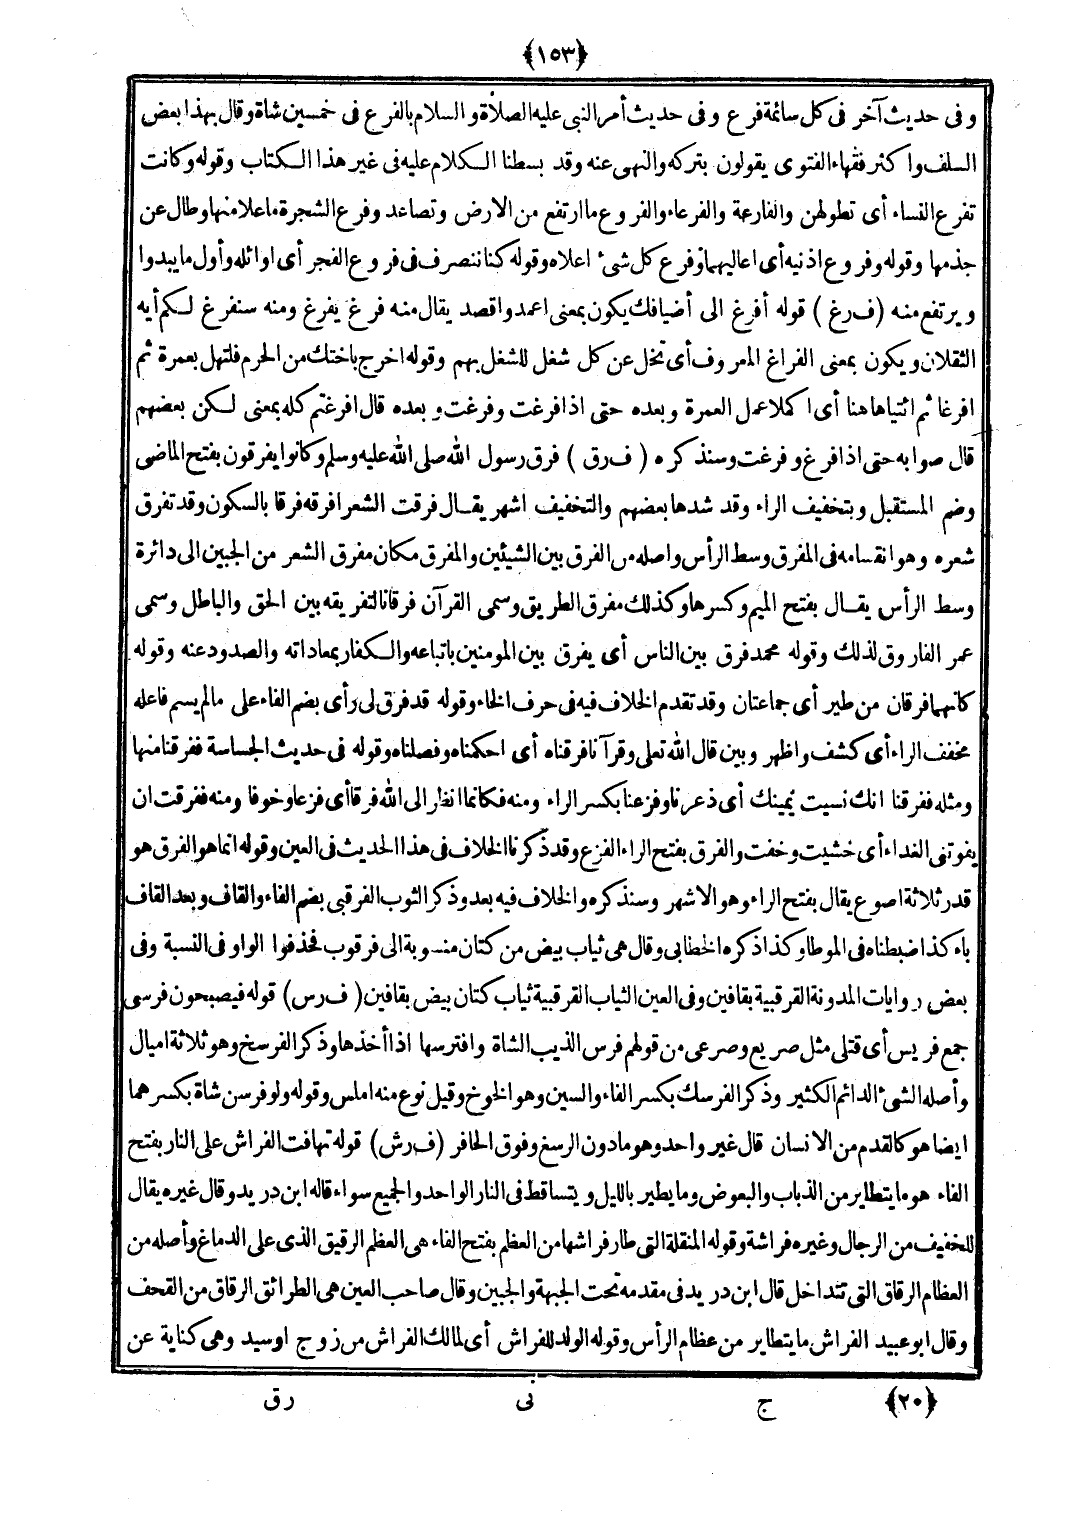 ﴿١٥٣﴾
وفى حديث آخر فى كل سائمة فرع وفى حديث أمر النبى عليه الصلاة والسلام بالفرع فى خمسين شاة وقال بهذا بعض
السلف واكثر فقهاء الفتوى يقولون بتركه والنهى عنه وقد بسطنا الكلام عليه فى غير هذا الكتاب وقوله وكانت
تفرع النساء أى تطولهن والفارعة والفرعاء والفروع ما ارتفع من الارض وتصاعد وفرع الشجرة ما علا منها وطال عن
جذمها وقوله وفروع اذنيه أى اعاليهما وفرع كل شىء اعلاه وقوله كنا ننصرف فى فروع الفجر أى اوائله وأول ما يبدوا
ويرتفع منه (ف رغ) قوله أفرغ الى أضيافك يكون بمعنى اعمد واقصد يقال منه فرغ يفرغ ومنه سنفرغ لكم أيه
الثقلان ويكون بمعنى الفراغ المعروف أى تخل عن كل شغل للشغل بهم وقوله اخرج باختك من الحرم فلتهل بعمرة ثم
افرغا ثم ائتياها هنا أى اكملا عمل العمرة وبعده حتى اذا فرغت وفرغت وبعده قال افرغتم كله بمعنى لكن بعضهم
قال صوابه حتى اذا فرغ وفرغت وسنذكره (ف رق) فرق رسول الله صلى الله عليه وسلم وكانوا يفرقون بفتح الماضى
وضم المستقبل وبتخفيف الراء وقد شدها بعضهم والتخفيف اشهر يقال فرقت الشعر افرقه فرقا بالسكون وقد تفرق
شعره وهو انقسامه فى المفرق وسط الرأس واصله من الفرق بين الشيئين والمفرق مكان مفرق الشعر من الجبين الى دائرة
وسط الرأس يقال بفتح الميم وكسرها وكذلك مفرق الطريق وسمى القرآن فرقانا لتفريقه بين الحق والباطل وسمى
عمر الفاروق لذلك وقوله محمد فرق بين الناس أى يفرق بين المومنين باتباعه والكفار بمعاداته والصدود عنه وقوله
كانهما فرقان من طير أى جماعتان وقد تقدم الخلاف فيه فى حرف الخاء وقوله قد فرق لى رأى بضم الفاء على مالم يسم فاعله
مخفف الراء أى كشف واظهر وبين قال الله تعلى وقرآنا فرقناه أى احكمناه وفصلناه وقوله فى حديث الجساسة ففرقنا منها
ومثله ففرقنا انك نسيت يمينك أى ذعرنا وفزعنا بكسر الراء ومنه فكانما انظر الى الله فرقا أى فزعا وخوفا ومنه ففرقت ان
يفوتنى الغداء أى خشيت وخفت والفرق بفتح الراء الفزع وقد ذكرنا الخلاف فى هذا الحديث فى العين وقوله انما هو الفرق هو
قدر ثلاثة اصوع يقال بفتح الراء وهو الاشهر وسنذكره والخلاف فيه بعد وذكر الثوب الفرقبى بضم الفاء والقاف وبعد القاف
باء كذا ضبطناه فى الموطا وكذا ذكره الخطابى وقال هى ثياب بيض من كتان منسوبة الى فرقوب فحذفوا الواو فى النسبة وفى
بعض روايات المدونة القرقبية بقافين وفى العين الثياب القرقبية ثياب كتان بيض بقافين (ف رس) قوله فيصبحون فرسى
جمع فريس أى قتلى مثل صريع وصرعى من قولهم فرس الذيب الشاة وافترسها اذا أخذها وذكر الفرسخ وهو ثلاثة اميال
وأصله الشىء الدائم الكثير وذكر الفرسك بكسر الفاء والسين وهو الخوخ وقيل نوع منه املس وقوله ولو فرسن شاة بكسرهما
ايضا هو كالقدم من الانسان قال غير واحد وهو مادون الرسغ وفوق الحافر (ف رش) قوله تهافت الفراش على النار بفتح
الفاء هو ما يتطاير من الذباب والبعوض وما يطير بالليل ويتساقط فى النار الواحد والجميع سواء قاله ابن دريد وقال غيره يقال
للخفيف من الرجال وغيره فراشة وقوله المنقلة التى طار فراشها من العظم بفتح الفاء هى العظم الرقيق الذى على الدماغ وأصله من
العظام الرقاق التى تتداخل قال ابن دريد فى مقدمه تحت الجبهة والجبين وقال صاحب العين هى الطرائق الرقاق من القحف
وقال ابو عبيد الفراش ما يتطاير من عظام الرأس وقوله الولد للفراش أى لمالك الفراش من زوج اوسيد وهى كناية عن
﴿٢٠﴾ ج نى رق